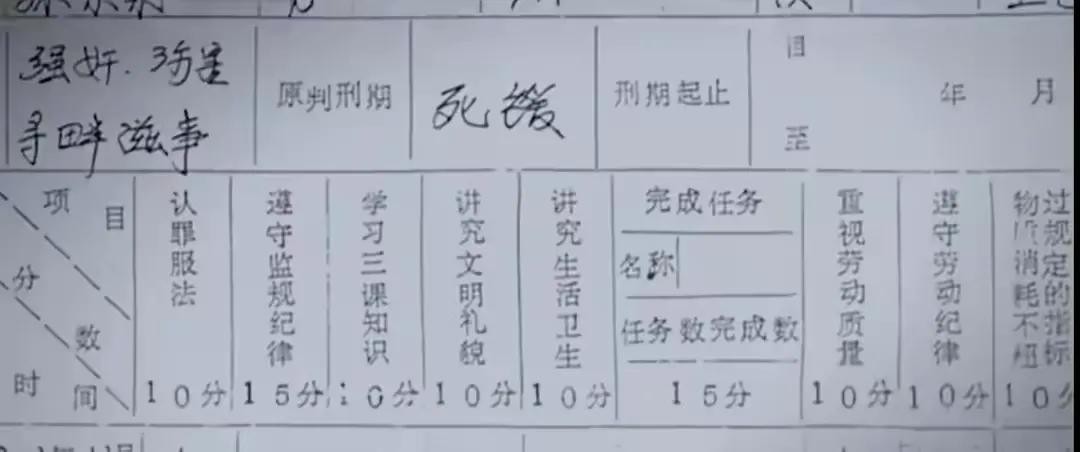 强奸.伤害
寻畔滋事
原判刑期
死缓
刑期起止
自 年 月
至
项目
分数
时间
认罪服法
10分
遵守监规纪律
15分
学习三课知识
10分
讲究文明礼貌
10分
讲究生活卫生
10分
完成任务
名称
任务数完成数
15分
重视劳动质量
10分
遵守劳动纪律
10分
物质消耗不超
过规定的指标
10分